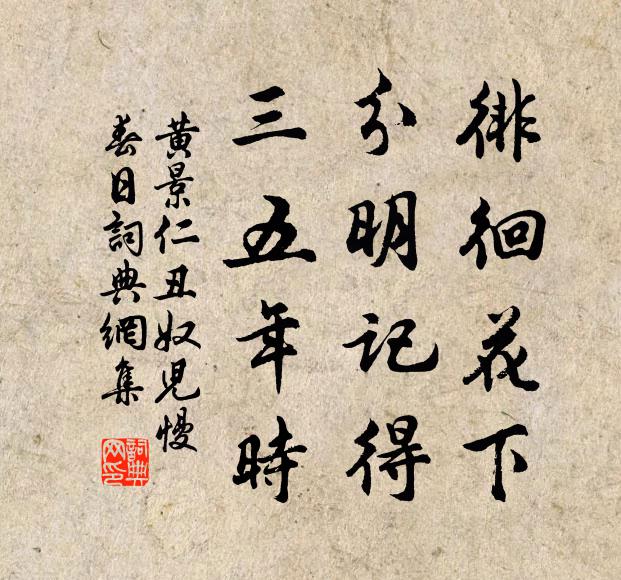 徘徊花下
分明記得
三五年時
黃景仁丑奴兒慢
春日詞典網集
詞典
网印